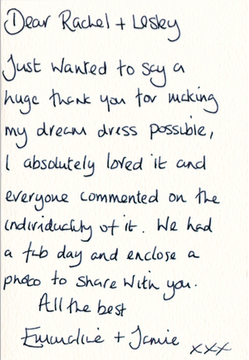 Dear Rachel + Lesley
Just wanted to say a
huge thank you for making
my dream dress possible,
I absolutely loved it and
everyone commented on the
individuality of it. We had
a fab day and enclose a
photo to share with you.
All the best
Emmaline + Jamie xxx